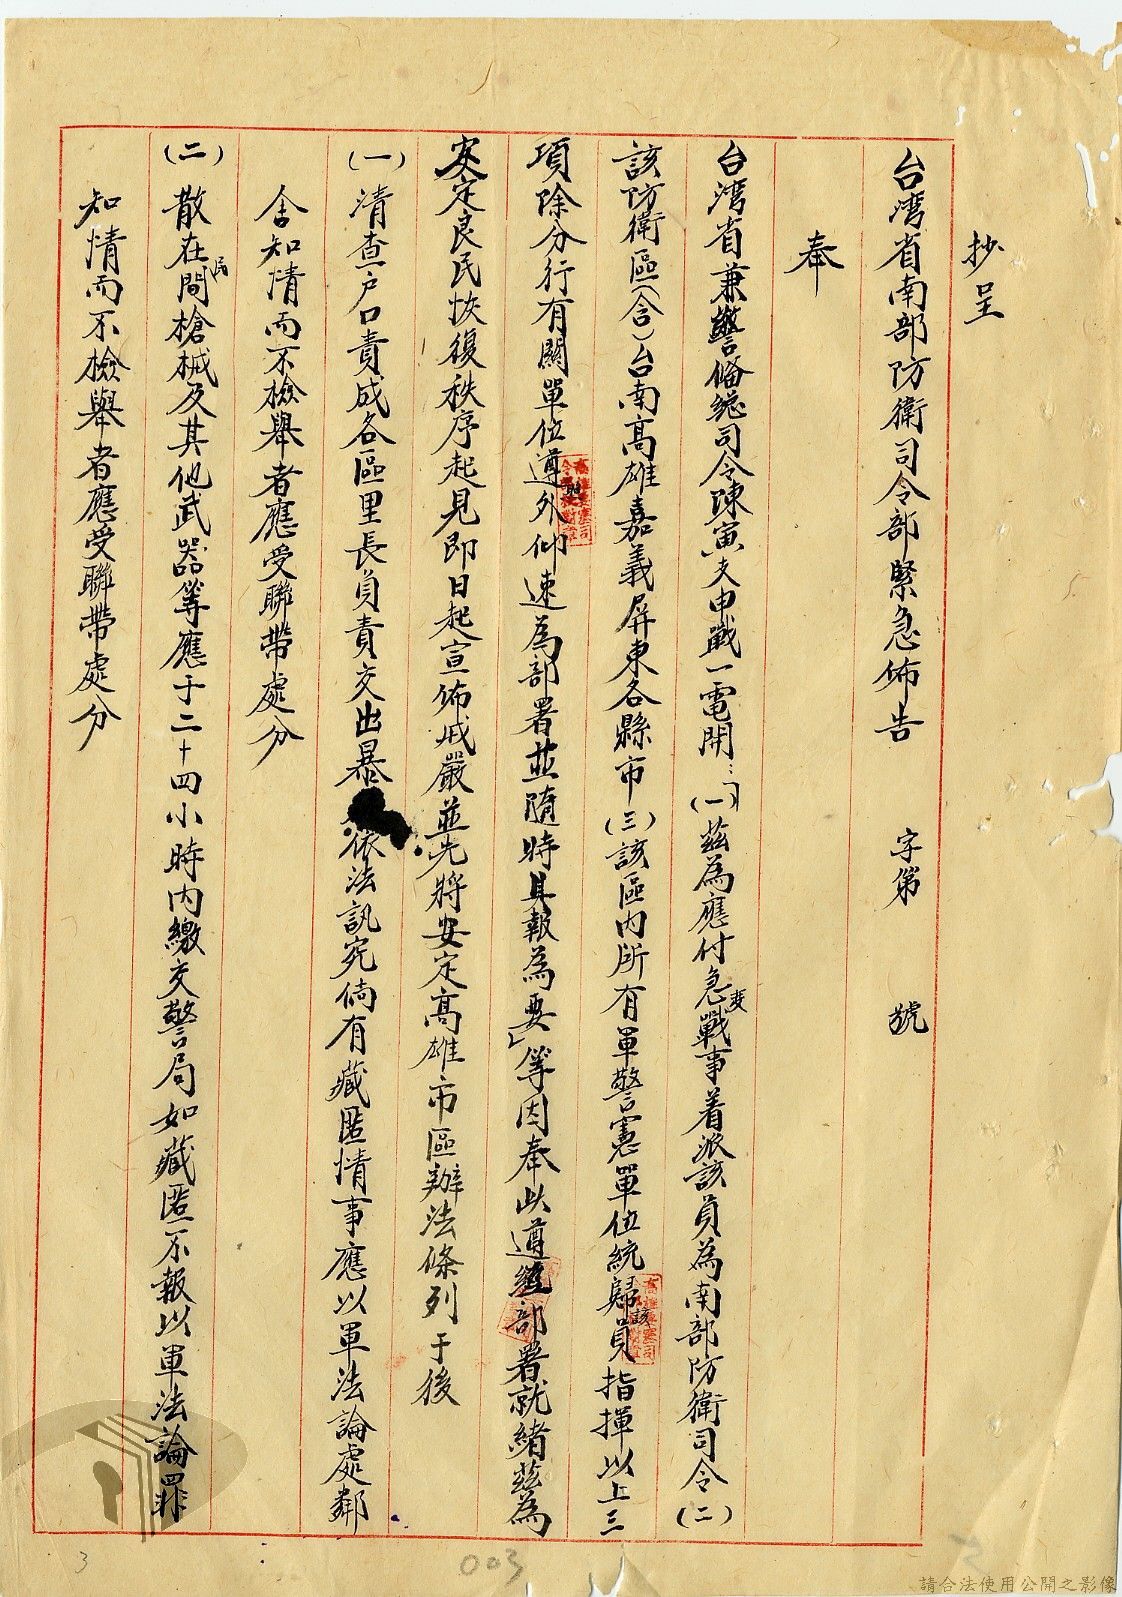 抄呈
台湾省南部防衛司令部緊急佈告　字第　號
奉
台湾省兼警備總司令陳寅支申戰一電開…「(一)茲為應付急變戰事着派該員為南部防衛司令(二)
該防衛區(含)台南高雄嘉義屏東各縣市(三)該區內所有軍警憲單位統歸該員指揮以上三
項除分行有關單位遵照外仰速為部署並隨時具報為要」等因奉此遵經部署就緒茲為
安定良民恢復秩序起見即日起宣佈戒嚴並先將安定高雄市區辦法條列于後
(一)清查户口責成各區里長負責交出暴　依法訊究倘有藏匿情事應以軍法論處鄰
舍知情而不檢舉者應受聯帶處分
(二)散在民間槍械及其他武器等應于二十四小時内繳交警局如藏匿不報以軍法論罪
知情而不檢舉者應受聯帶處分
003
3
請合法使用公開之影像